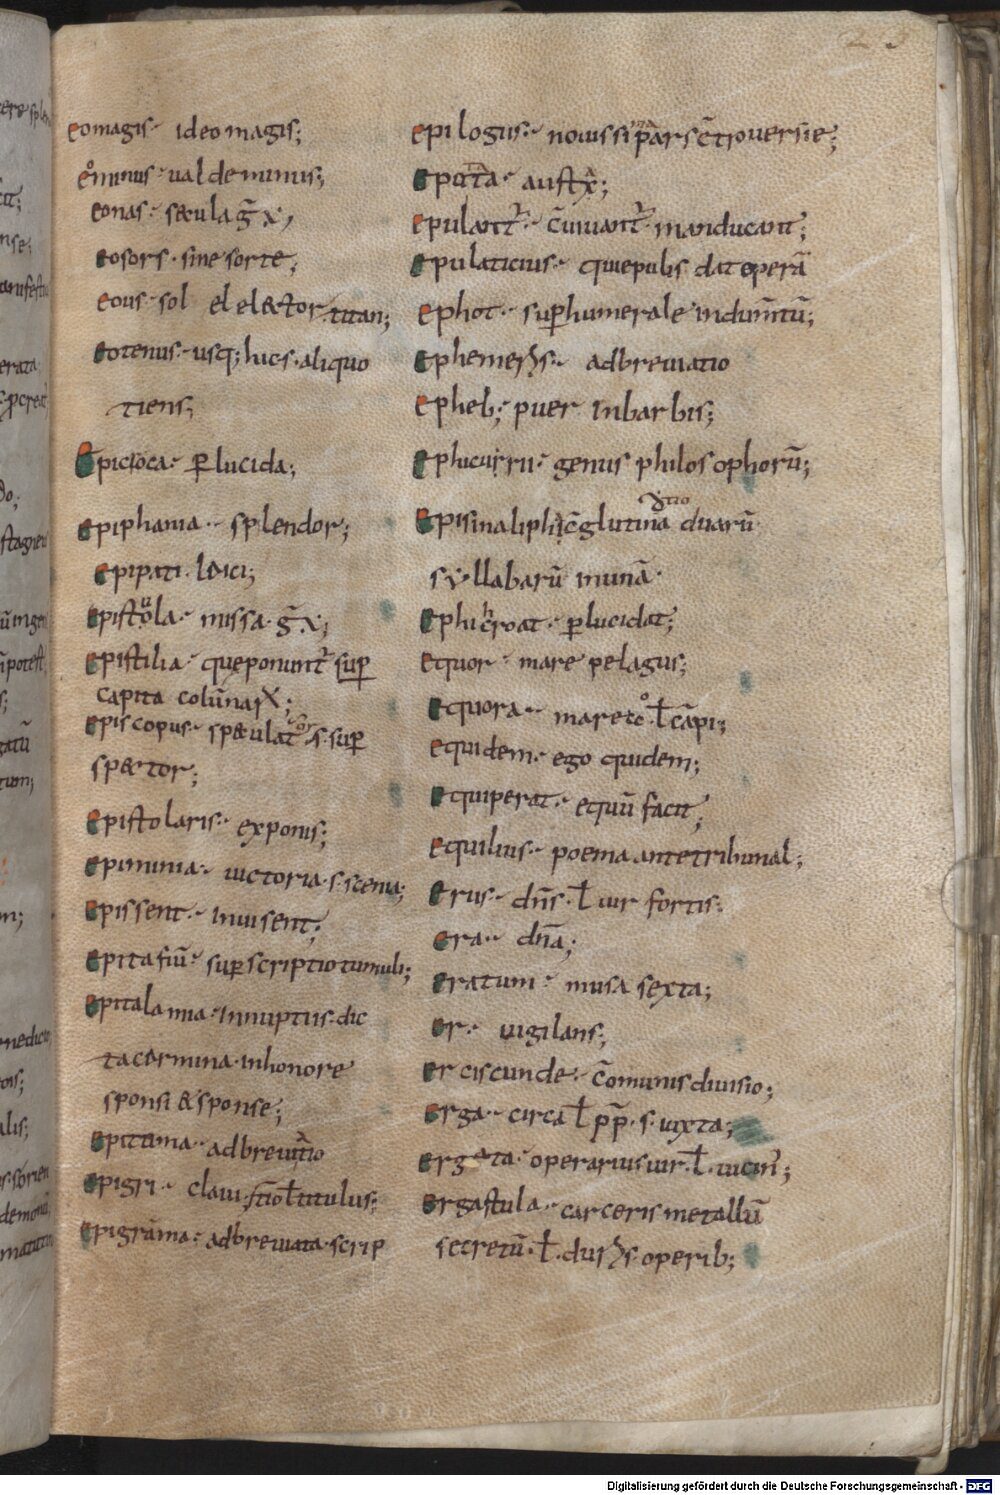 eomagis· ideo magis;
eominus· ualde minus;
eonas· secula gr̄ x;
eosors· sine sorte;
eous· sol el elector titan;
eotenus· usq; huc· s· aliquo
tiens;
Epicroca· ꝑlucida;
epiphania· splendor;
epipati·
epistola· missa· gr̄ x;
epistilia· que ponunt̄ suꝑ
capita colūnaꝝ;
episcopus· speculator s· suꝑ
spector;
epistolaris· exponis;
epininia· uictoria· s· scenia;
epissent· inuisent;
epitafiū· suꝑscriptio tumuli;
epitalamia· innuptiis dic
ta carmina· in honore
sponsi & sponse;
epitima· adbreuiatio
epigri· claui· ł titulus;
epigrāma· adbreuiata· scrip
epilogus· nouissima pars c̄trouersie;
epulant̄· c̄uiuant̄· manducant;
epulaticius· qui epulis dat operā
ephot· suꝑhumerale indum̄tū;
ephemeris· adbreuiatio
epheb; puer inbarbis;
ephicurrii· genus philosophorū;
episinaliphi c̄glutinatio duarū
syllabarū in unā·
ephicroat· ꝑlucidat;
equor· mare pelagus;
equora· mare ł cāpi;
equidem· ego quidem;
equiperat· equū facit;
equilius· poema ante tribunal;
erus· dn̄s· ł uir fortis;
era· dn̄a;
eratum· musa sexta;
er· uigilans;
erciscunde· c̄omunis diuisio;
erga· circa ł ꝓp̄· s· iuxta;
ergata· operarius uir· ł· uicin̄;
ergastula· carceris metallū
secretū· ł· duris operib;
Digitalisierung gefördert durch die Deutsche Forschungsgemeinschaft - DFG